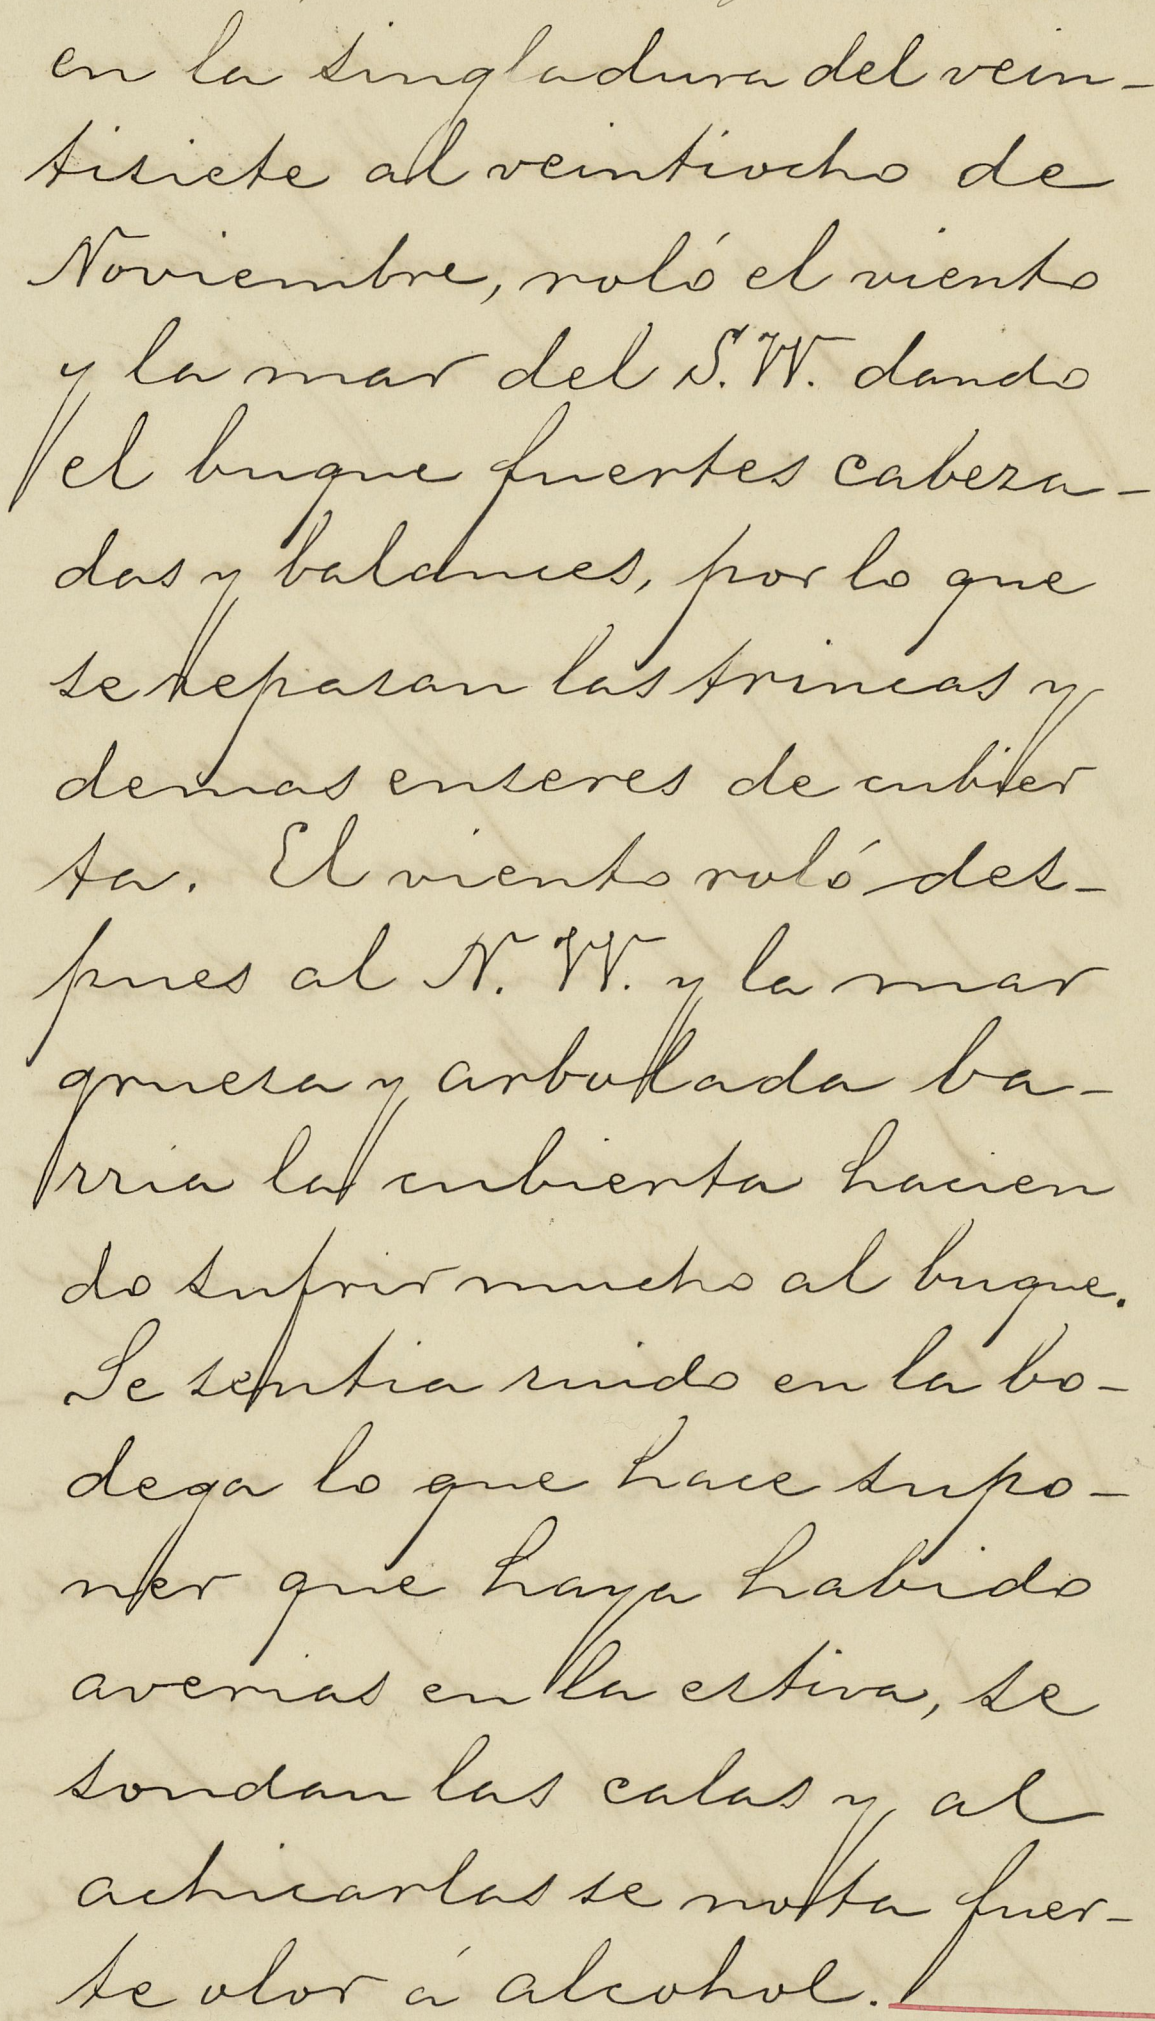 en la singladura del vein-
tisiete al veintiocho de
Noviembre, roló el viento
y la mar del S.W. dando
el buque fuertes cabeza-
das y balances, por lo que
se repasan las trincas y
demas enseres de cubier
ta. El viento roló des-
pues al N.W. y la mar
gruesa y arbolada ba-
rria la cubierta hacien
do sufrir mucho al buque.
Se sentia ruido en la bo-
dega lo que hace supo-
ner que haya habido
averias en la estiva, se
sondan las calas y al
achicarlas se nota fuer-
te olor á alcohol.